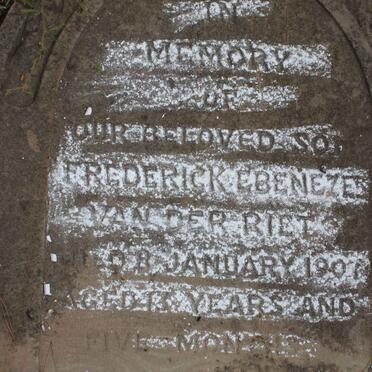 IN
MEMORY
OF
OUR BELOVED SON
FREDERICK EBENEZER
VAN DER RIET
JANUARY 1901
AGED YEARS AND
FIVE MONTHS